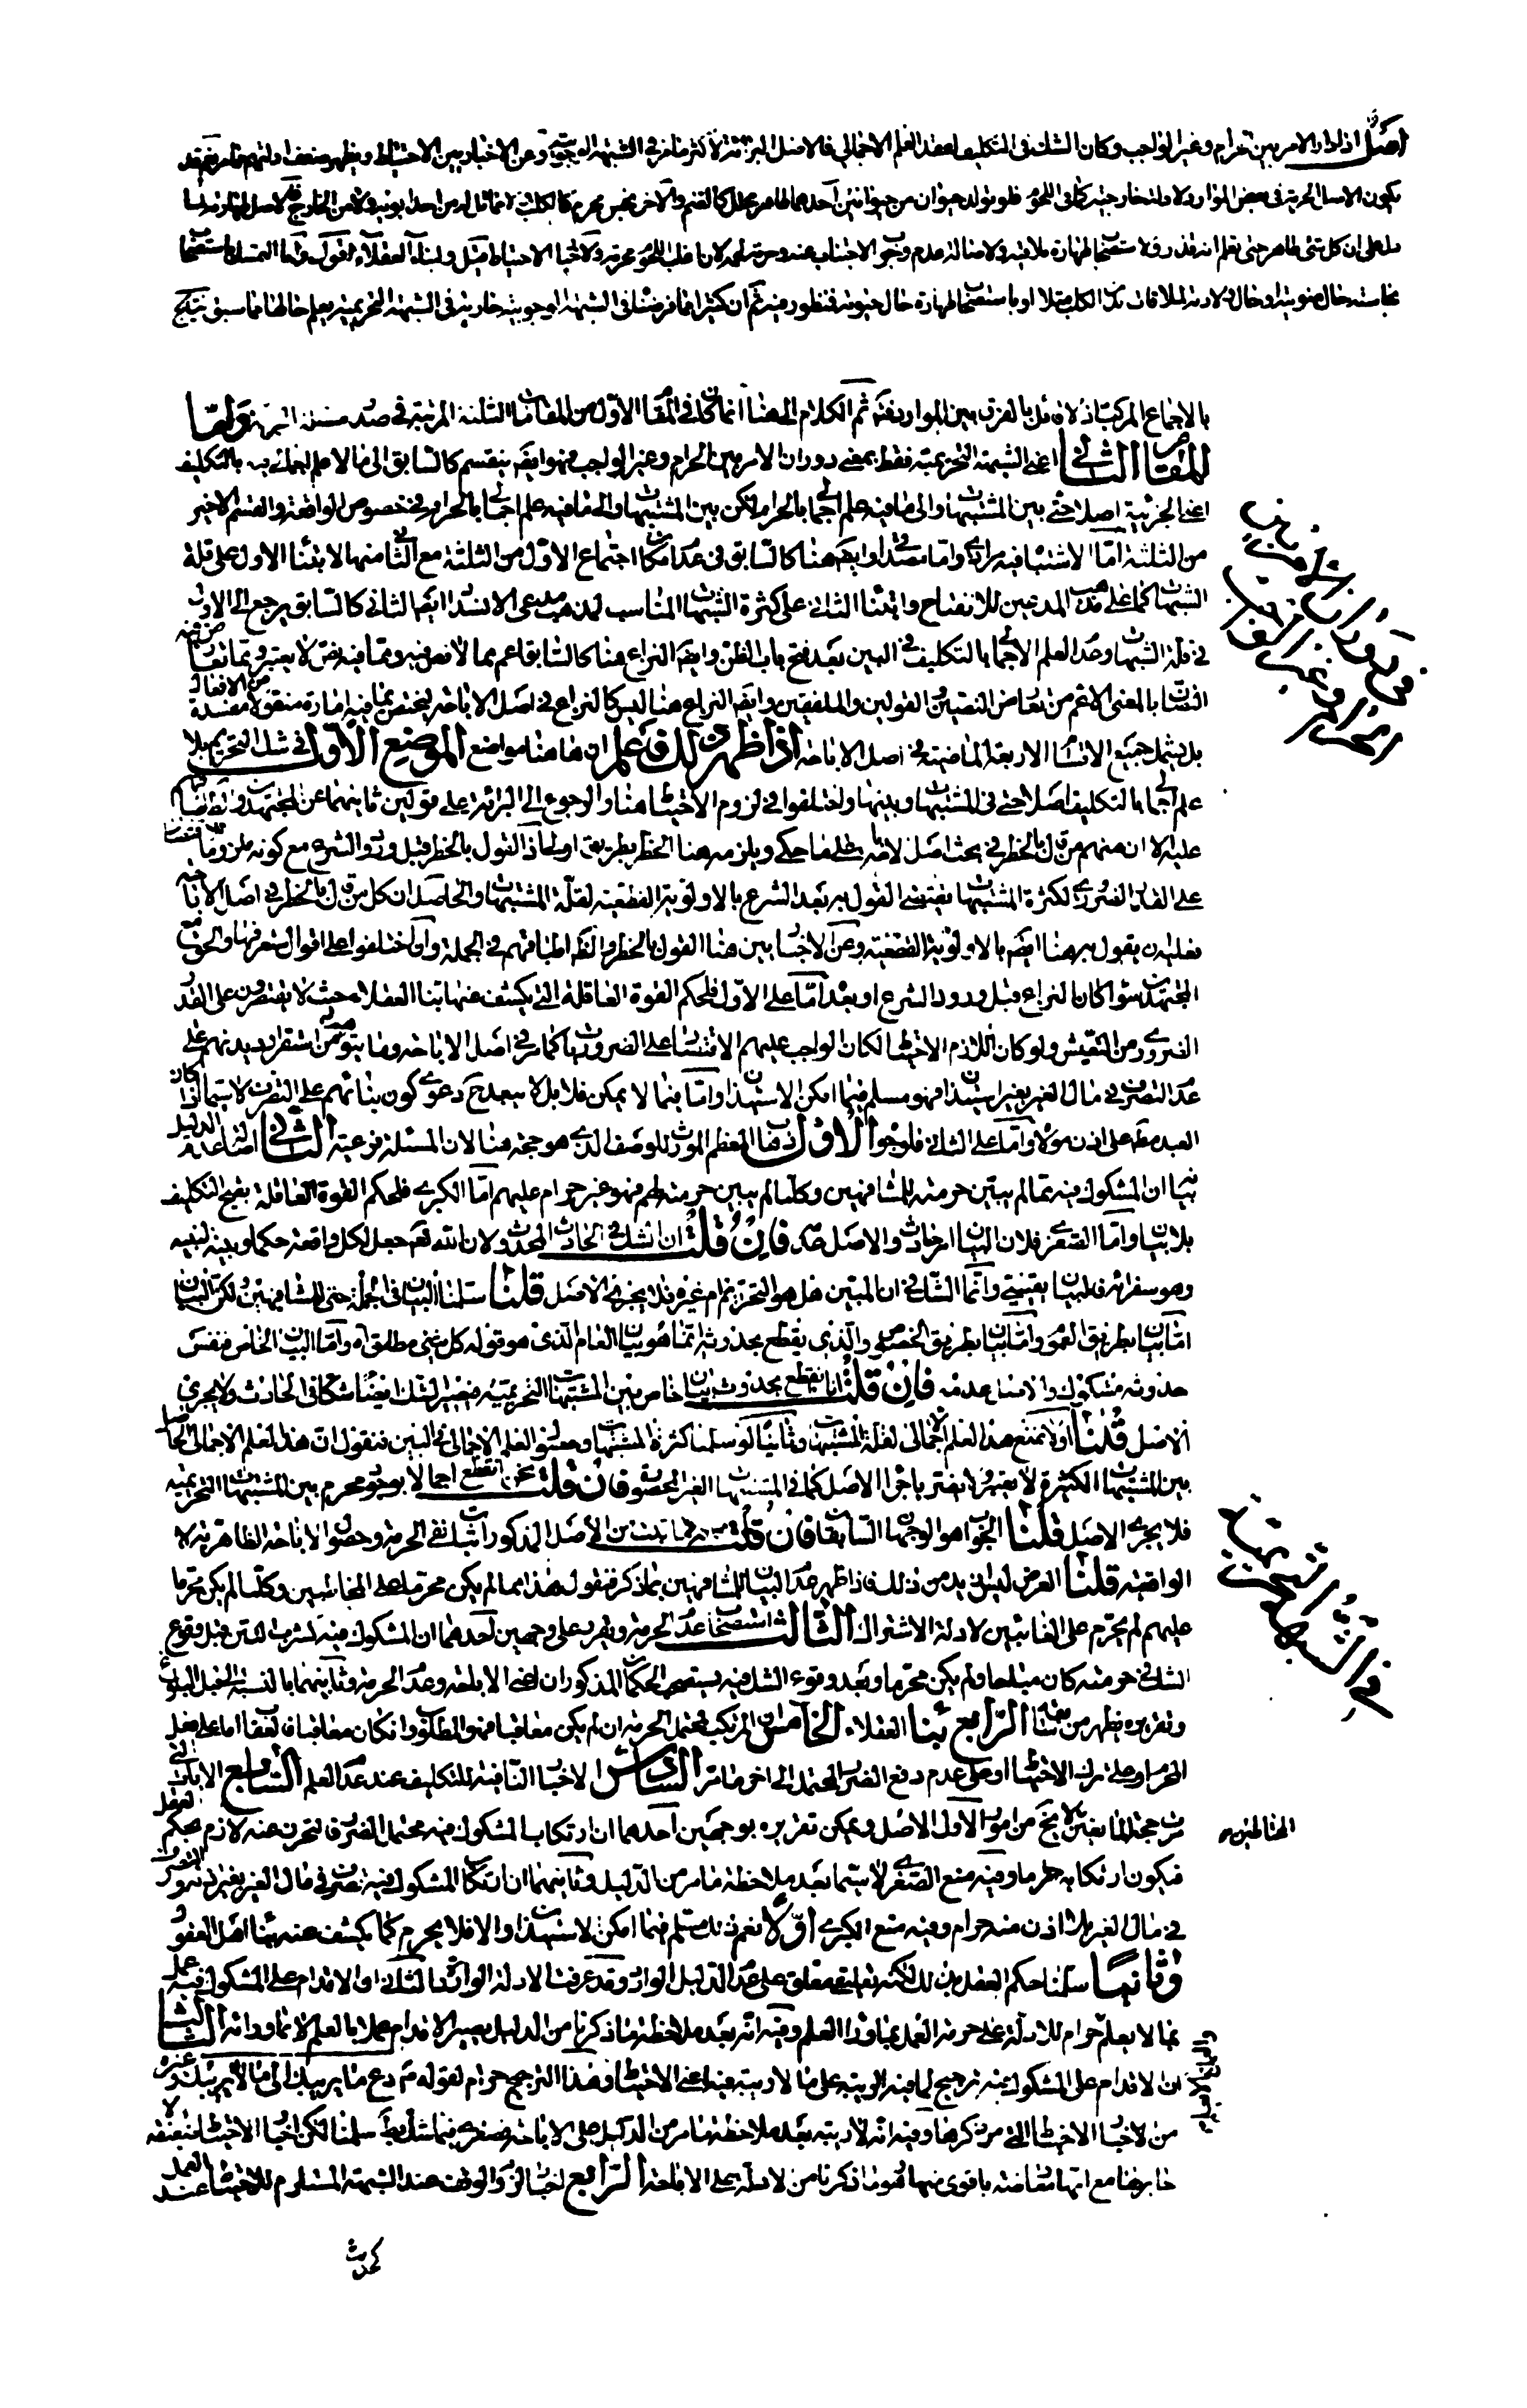 اصل اذا دار الامر بين الحرام وغير الواجب وكان الشك فى التكليف لفقد العلم الاجمالى فالاصل البرائة لأكثر ما مر فى الشبهة الوجوبية وعن الاخباريين الاحتياط ويظهر ضعف ادلتهم مما مر نعم قد
يكون الاصل الحرمة فى بعض الموارد لادلة خارجية كما فى اللحوم فلو تولد حيوان من حيوانين احدهما طاهر محلل كالغنم والآخر نجس محرم كالكلب
على ان كل شئ طاهر حتى تعلم انه قذر ولاستصحاب طهارة ملاقيه ولاصالة عدم وجوب الاجتناب عنه وحرمة لحمه لان الاغلب اللحوم محرمة ولاخبار الاحتياط قيل ولبناء العقلاء واما التمسك باستصحاب
نجاسته حال منويته او حال ولادته لملاقات بدن الكلب مثلا او باستصحاب طهارة حال حيوته فمنظور فيه ثم ان كثيرا مما فرضنا فى الشبهة الوجوبية جارية فى الشبهة التحريمية يعلم حالها مما سبق
بالاجماع المركب اذ لا قائل بالفرق بين الموارد فيه ثم الكلام الى هنا انما كان فى المقام الاول من المقامات الثلثة المرتبة فى صدر مسئلة واما
المقام الثانى اعنى الشبهة التحريمية فقط بمعنى دوران الامر بين الحرام وغير الواجب فهو ايضا ينقسم كالسابق الى ما لا علم اجمالى به بالتكليف
اعنى الحرمة اصلا حتى بين المشتبهات والى ما فيه علم اجمالى بالحرام لكن بين المشتبهات والى ما فيه علم اجمالى بالحرام فى خصوص الواقعة والقسم الاخير
من الثلثة اما الاشتباه فيه مرادى واما مصداقى وايضا هنا كالسابق فى عدم امكان اجتماع الاول من الثلثة مع الثانى منها لابتناء الاول على قلة
الشبهات كما على مذهب المدعين للانفتاح وابتناء الثانى على كثرة الشبهات المناسب لمذهب مدعى الانسداد ايضا الثانى كالسابق يرجع الى الاول
فى قلة الشبهات وعدم العلم الاجمالى بالتكليف فى البين بعد فتح باب الظن وايضا النزاع هنا كالسابق اعم مما لا نص فيه ومما فيه نص لا يعتبر ومما تعارض فيه
النصان بالمعنى الاعم من تعارض النصين القولين والملفقين وايضا النزاع هنا ليس كالنزاع فى اصل الاباحة يختص بما فيه امارة منفعة لا مفسدة من الافعال
بل يشمل جميع الاقسام الاربعة الماضية فى اصل الاباحة اذا ظهر ذلك فاعلم ان هاهنا مواضع الموضع الاول فى شك التحريم بلا
علم اجمالى بالتكليف اصلا حتى فى المشتبهات وبينها واختلفوا فى لزوم الاحتياط هنا والرجوع الى البرائة على قولين ثانيهما عن المجتهدين
عليه الا ان منهم من قال بالخطر فى بحث اصل الاباحة على ما حكى ويلزمه هنا الخطر بطريق اولى اذ القول بالخطر قبل ورود الشرع مع كونه ملزوما
على القدر الضرورى لكثرة المشتبهات يقتضى القول به بعد الشرع بالاولوية القطعية لقلة المشتبهات والحاصل ان كل من قال بالخطر فى اصل الاباحة
فعليه ان يقول به هنا ايضا بالاولوية القطعية وعن الاخباريين هنا القول بالخطر والظاهر اطباقهم فى الجملة وان اختلفوا على اقوال ستعرفها والحق مع
المجتهدين سواء كان النزاع قبل ورود الشرع او بعده اما على الاول فلحكم القوة العاقلة التى يكشف عنها بناء العقلاء حيث لا يقتصرون على القدر
الضرورى من التعيش ولو كان اللازم الاحتياط لكان الواجب عليهم الاقتصار على الضروريات كما مر فى اصل الاباحة وما يتوهم من استقرار ديدنهم على
عدم التصرف فى مال الغير بغير استيذان فهو مسلم فيما امكن الاستيذان واما فيما لا يمكن فلا بل لا يبعد ح دعوى كون بنائهم على التصرف لا سيما اذا كان
العبد مطمئنا على اذن مولاه واما على الثانى فلوجوه الاول ذهاب المعظم المورث للوصف الذى هو حجة هنا لان المسئلة فرعية الثانى اصالة عدم الدليل
فيها ان المشكوك فيه مما لم يبين حرمته للمشافهين وكلما لم يبين حرمته لهم فهو غير حرام عليهم اما الكبرى فلحكم القوة العاقلة بقبح التكليف
بلا بيان واما الصغرى فلان البيان امر حادث والاصل عدمه فان قلت ان الشك فى الحادث لا الحدوث ولان الله تعالى جعل لكل واقعة حكما وبينه لنبيه
وهو سفرائه فالبيان يقينى وانما الشك فى ان المبين هل هو التحريم ام غيره فلا يجرى الاصل قلنا سلمنا البيان فى الجملة حتى للمشافهين لكن البيان
اما بيان بطريق العموم واما بيان بطريق الخصوص والذى يقطع بحدوثه انما هو بيان العام الذى هو قوله كل شئ مطلق اه واما البيان الخاص فنفس
حدوثه مشكوك والاصل عدمه فان قلت انا نقطع بحدوث بيان خاص بين المشتبهات التحريمية فيصير الشك ايضا شكا فى الحادث ولا يجرى
الاصل قلنا اولا نمنع هذا العلم الاجمالى لقلة المشتبهات وثانيا لو سلمنا كثرة المشتبهات وحصول العلم الاجمالى فى البين فنقول ان هذا العلم الاجمالى الحاصل
بين المشتبهات الكثيرة لا يعتبر ولا يضر باجراء الاصل كما فى المشتبهات الغير المحصورة فان قلت نحن نقطع اجمالا بوجود محرم بين المشتبهات التحريمية
فلا يجرى الاصل قلنا الجواب هو الوجهان السابقان فان قلت الاصل المذكور اثبات نفى الحرمة وحصول الاباحة الظاهرية لا
الواقعية قلنا الغرض ليس ازيد من ذلك فاذا ظهر عدم البيان للمشافهين بما ذكر فنقول هذا مما لم يكن محرما على المخاطبين وكلما لم يكن محرما
عليهم لم يحرم على الغائبين لادلة الاشتراك الثالث استصحاب عدم الحرمة وتقريره على وجهين احدهما ان المشكوك فيه كشرب التتن قبل وقوع
الشك فى حرمته كان مباحا ولم يكن محرما وبعد وقوع الشك فيه يستصحب الحكمان المذكوران اعنى الاباحة وعدم الحرمة وثانيهما بالنسبة الى قبل البلوغ
وتقريره يظهر من سابقه الرابع بناء العقلاء الخامس ان مرتكب محتمل الحرمة ان لم يكن معاقبا فهو المطلوب وان كان معاقبا فالعقاب اما على فعل
الحرام او على ترك الاحتياط او على عدم دفع الضرر المحتمل الى اخر ما مر السادس الاخبار النافية للتكليف عند عدم العلم السابع الايات التى
مرت حجة المانعين لا يخ من امور الاول الاصل ويمكن تقريره بوجهين احدهما ان ارتكاب المشكوك فيه محتمل الضرر فالتحرز عنه لازم بحكم العقل
فيكون ارتكابه حراما وفيه منع الصغرى لا سيما بعد ملاحظة ما مر من الدليل وثانيهما ان ارتكاب المشكوك فيه تصرف فى مال الغير بغير اذنه والتصرف
فى مال الغير بلا اذن منه حرام وفيه منع الكبرى اولا نعم ذلك مسلم فيما امكن الاستيذان والا فلا يحرم كما يكشف عنه بناء اهل العقول
وثانيا سلمنا حكم العقل بذلك لكنه تعليقى معلق على عدم الدليل الوارد وقد عرفت الادلة الواردة الثانى ان الاقدام على المشكوك فيه عمل
بما لا يعلم حرام للادلة على حرمة العمل بما وراء العلم وفيه انه بعد ملاحظة ما ذكرنا من الدليل يصير الاقدام عملا بالعلم لا بما ورائه الثالث
ان الاقدام على المشكوك فيه ترجيح لما فيه الريبة على ما لا ريبة فيه اعنى الاحتياط وهذا الترجيح حرام لقوله ع دع ما يريبك الى ما لا يريبك وغيره
من الاخبار الاحتياط التى مر ذكرها وفيه انه لا ريبة بعد ملاحظة ما مر من الدليل على الاباحة سلمنا لكن اخبار الاحتياط ضعيفة لا
جابر لها مع انها معارضة باقوى منها وهو ما ذكرنا من الادلة على الاباحة الرابع اخبار التوقف عند الشبهة المستلزم للاحتياط عند العمل
فى دوران الامر بين الحرام وغير الواجب
فى الشبهة التحريمية
المخاطبين
كحديث